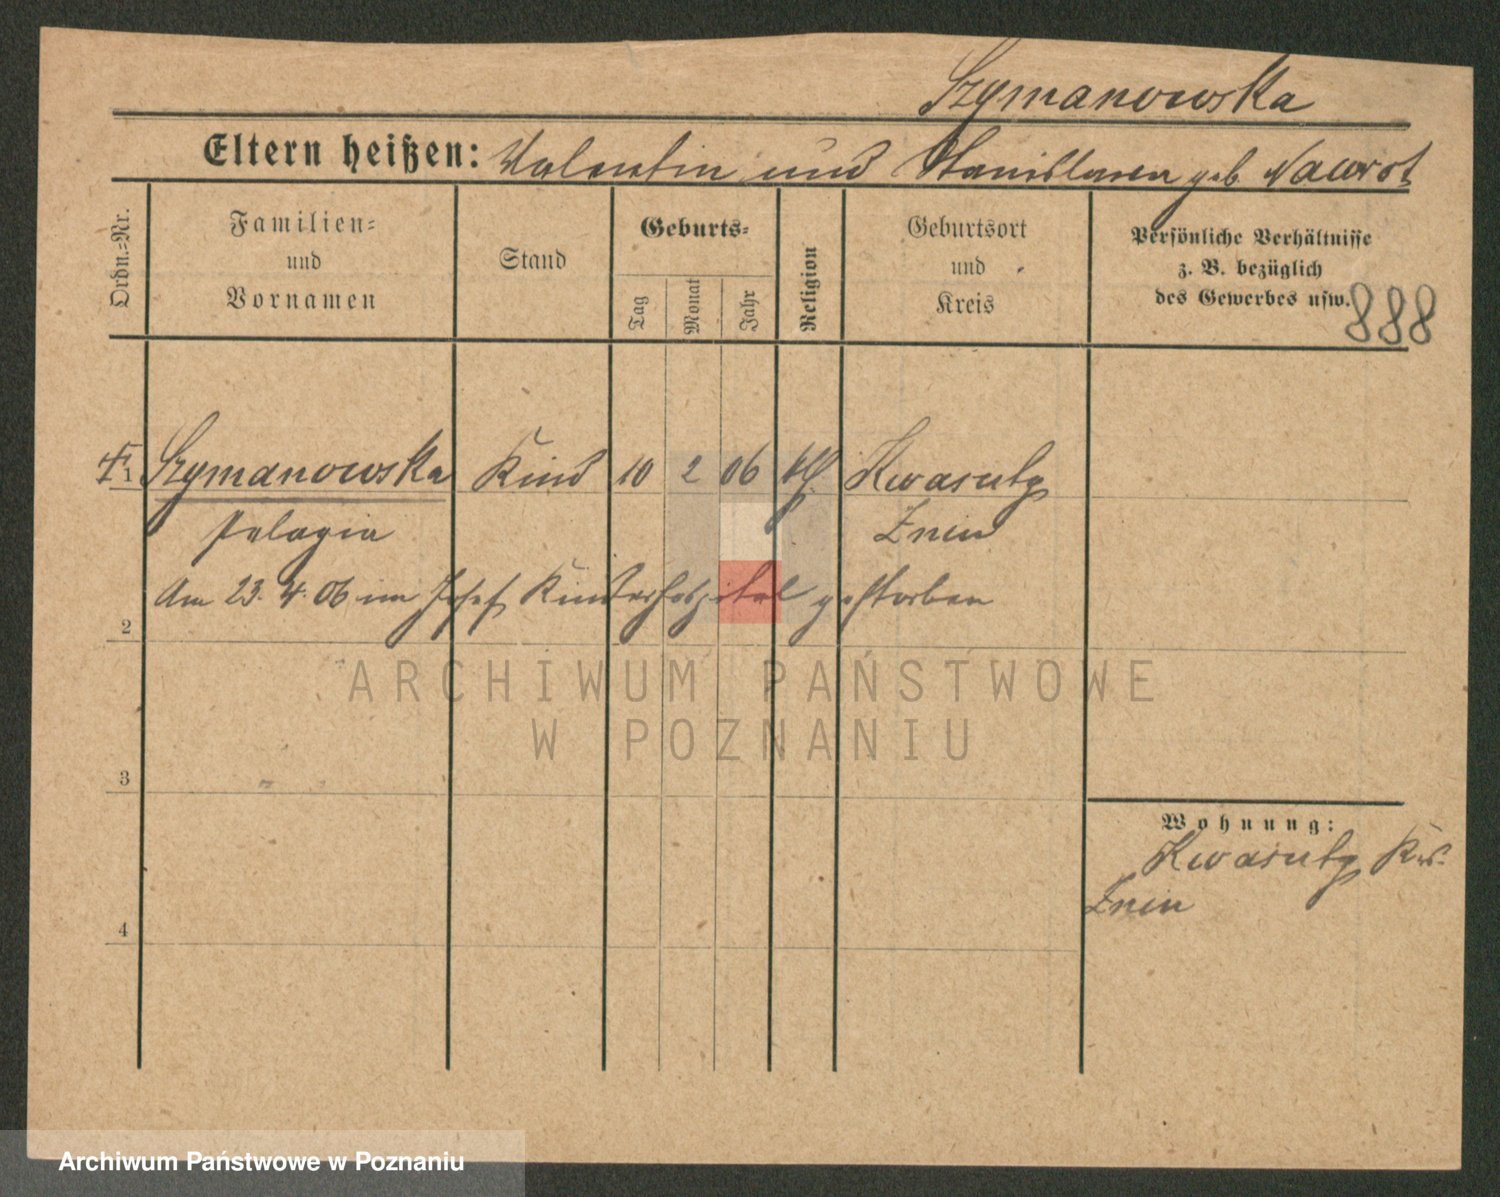 Szymanowska
Eltern heißen: Valentin und Stanislawa geb. Nawrot
Ordn.-Nr.
Familien-
und
Vornamen
Stand
Geburts-
Tag
Monat
Jahr
Religion
Geburtsort
und
Kreis
Persönliche Verhältnisse
z. B. bezüglich
des Gewerbes usw.
888
1 Szymanowska Kind 10 2 06 kth Kwasuty
Pelagia Znin
Am 23. 4. 06 im Josef Kinderhospital gestorben
2
3
4
Wohnung:
Kwasuty Krs.
Znin
ARCHIWUM PAŃSTWOWE
W POZNANIU
Archiwum Państwowe w Poznaniu